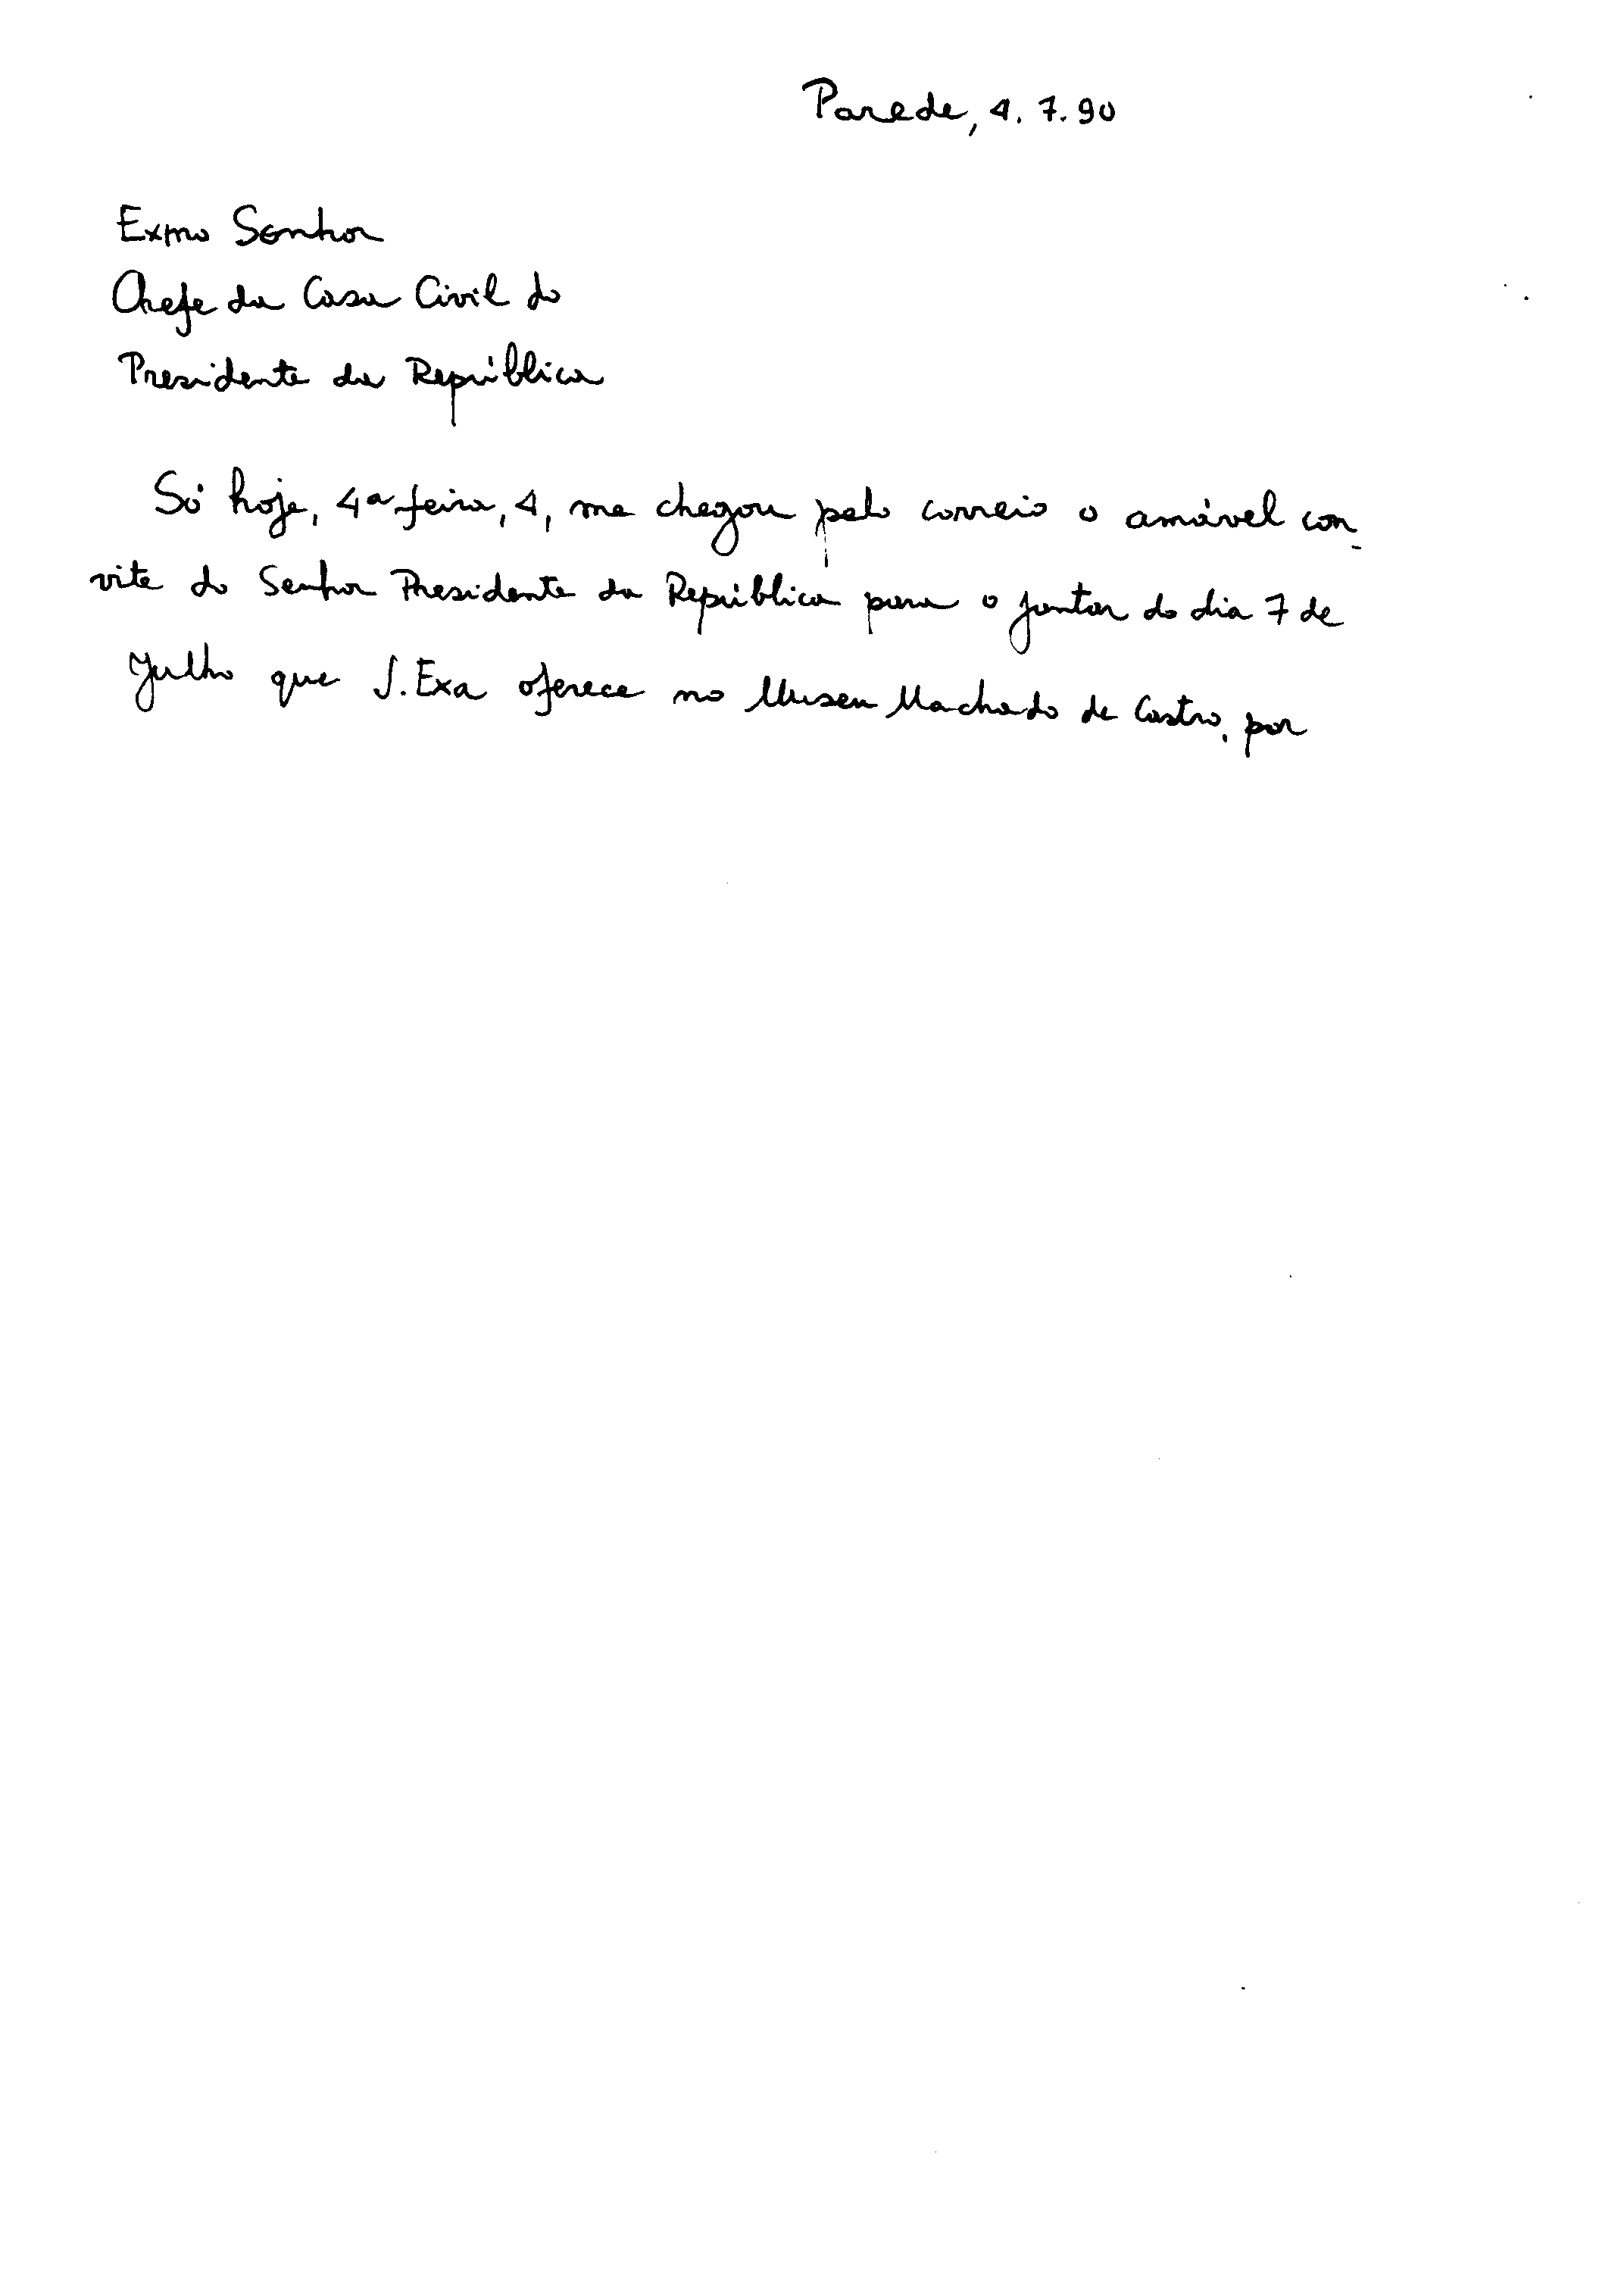 Parede, 4.7.90
Exmo Senhor
Chefe da Casa Civil do
Presidente da República
Só hoje, 4ª feira, 4, me chegou pelo correio o amável con-
vite do Senhor Presidente da República para o jantar do dia 7 de
Julho que S. Exa oferece no Museu Machado de Castro, por